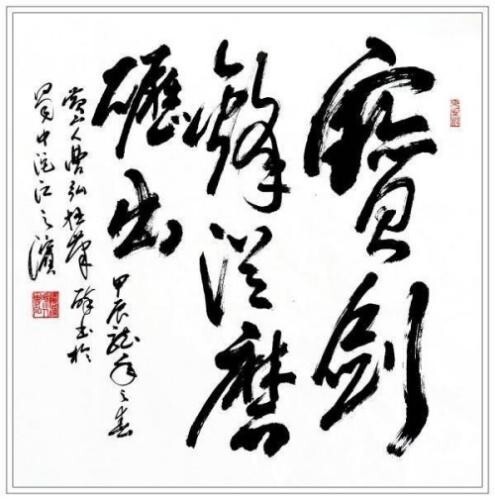 寶劍
鋒從磨
礪出
甲辰龍年之春
山人弘 醉書於
蜀中沱江之濱